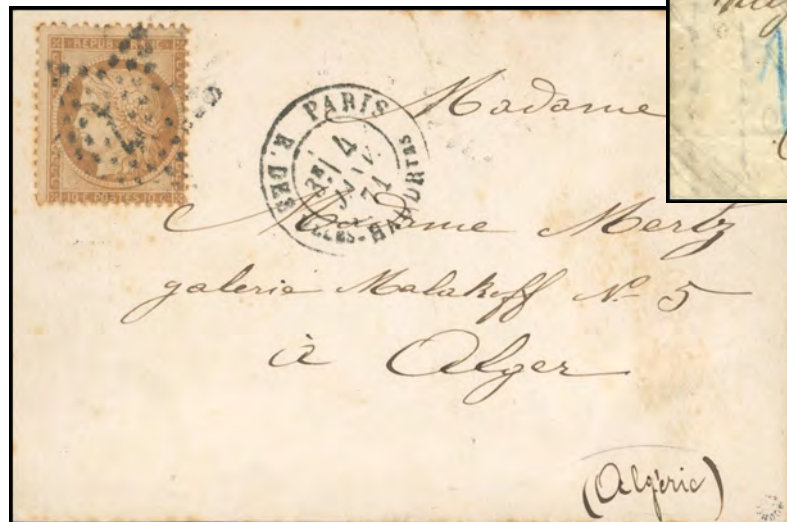 REPUB FRANC
10 C POSTES 10 C
PARIS
R. DES VIELLES-HAUDRTTES
4
71
Madame
Madame Mertz
galerie Malakoff № 5
à Alger
(Algérie)